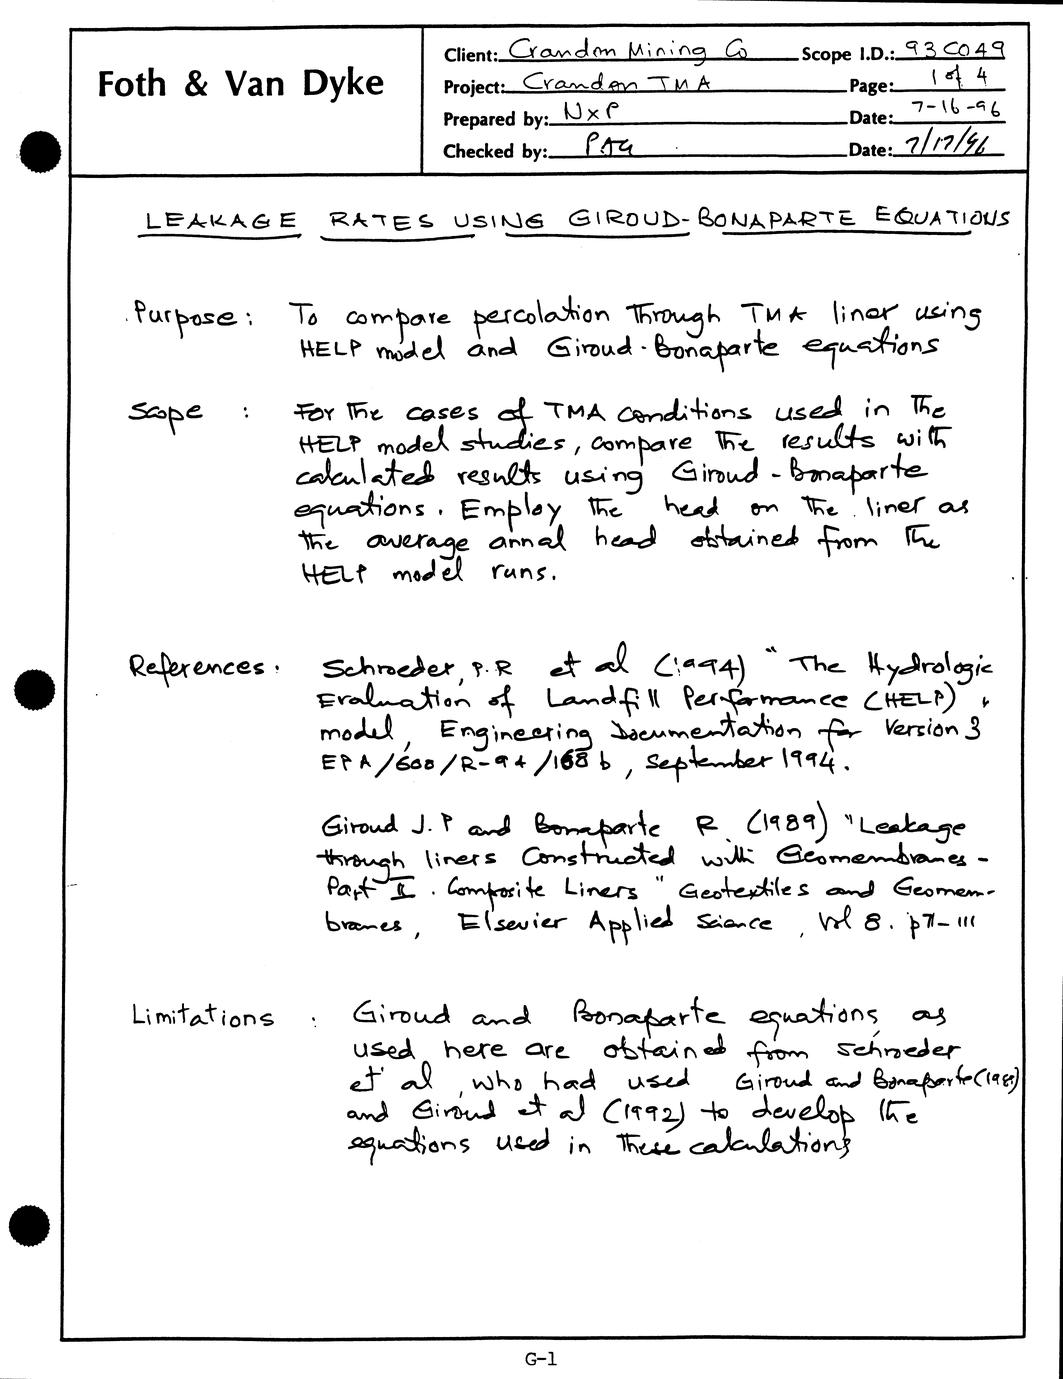 Foth & Van Dyke
Client: Crandon Mining Co Scope I.D.: 93C049
Project: Crandon TMA Page: 1 of 4
Prepared by: NxP Date: 7-16-96
Checked by: Date: 7/17/96
LEAKAGE RATES USING GIROUD-BONAPARTE EQUATIONS
Purpose: To compare percolation through TMA liner using
HELP model and Giroud-Bonaparte equations
Scope : For the cases of TMA conditions used in the
HELP model studies, compare the results with
calculated results using Giroud-Bonaparte
equations. Employ the head on the liner as
the average annal head obtained from the
HELP model runs.
References. Schroeder, P.R et al (1994) "The Hydrologic
Evaluation of Landfill Performance (HELP)
model, Engineering Documentation for Version 3
EPA/600/R-94/168b, September 1994.
Giroud J.P and Bonaparte R. (1989) "Leakage
through liners Constructed with Geomembranes -
Part II. Composite Liners" Geotextiles and Geomem-
branes, Elsevier Applied Science, Vol 8. p71-111
Limitations : Giroud and Bonaparte equations, as
used here are obtained from Schroeder
et al, who had used Giroud and Bonaparte (1989)
and Giroud et al (1992) to develop the
equations used in these calculations
G-1